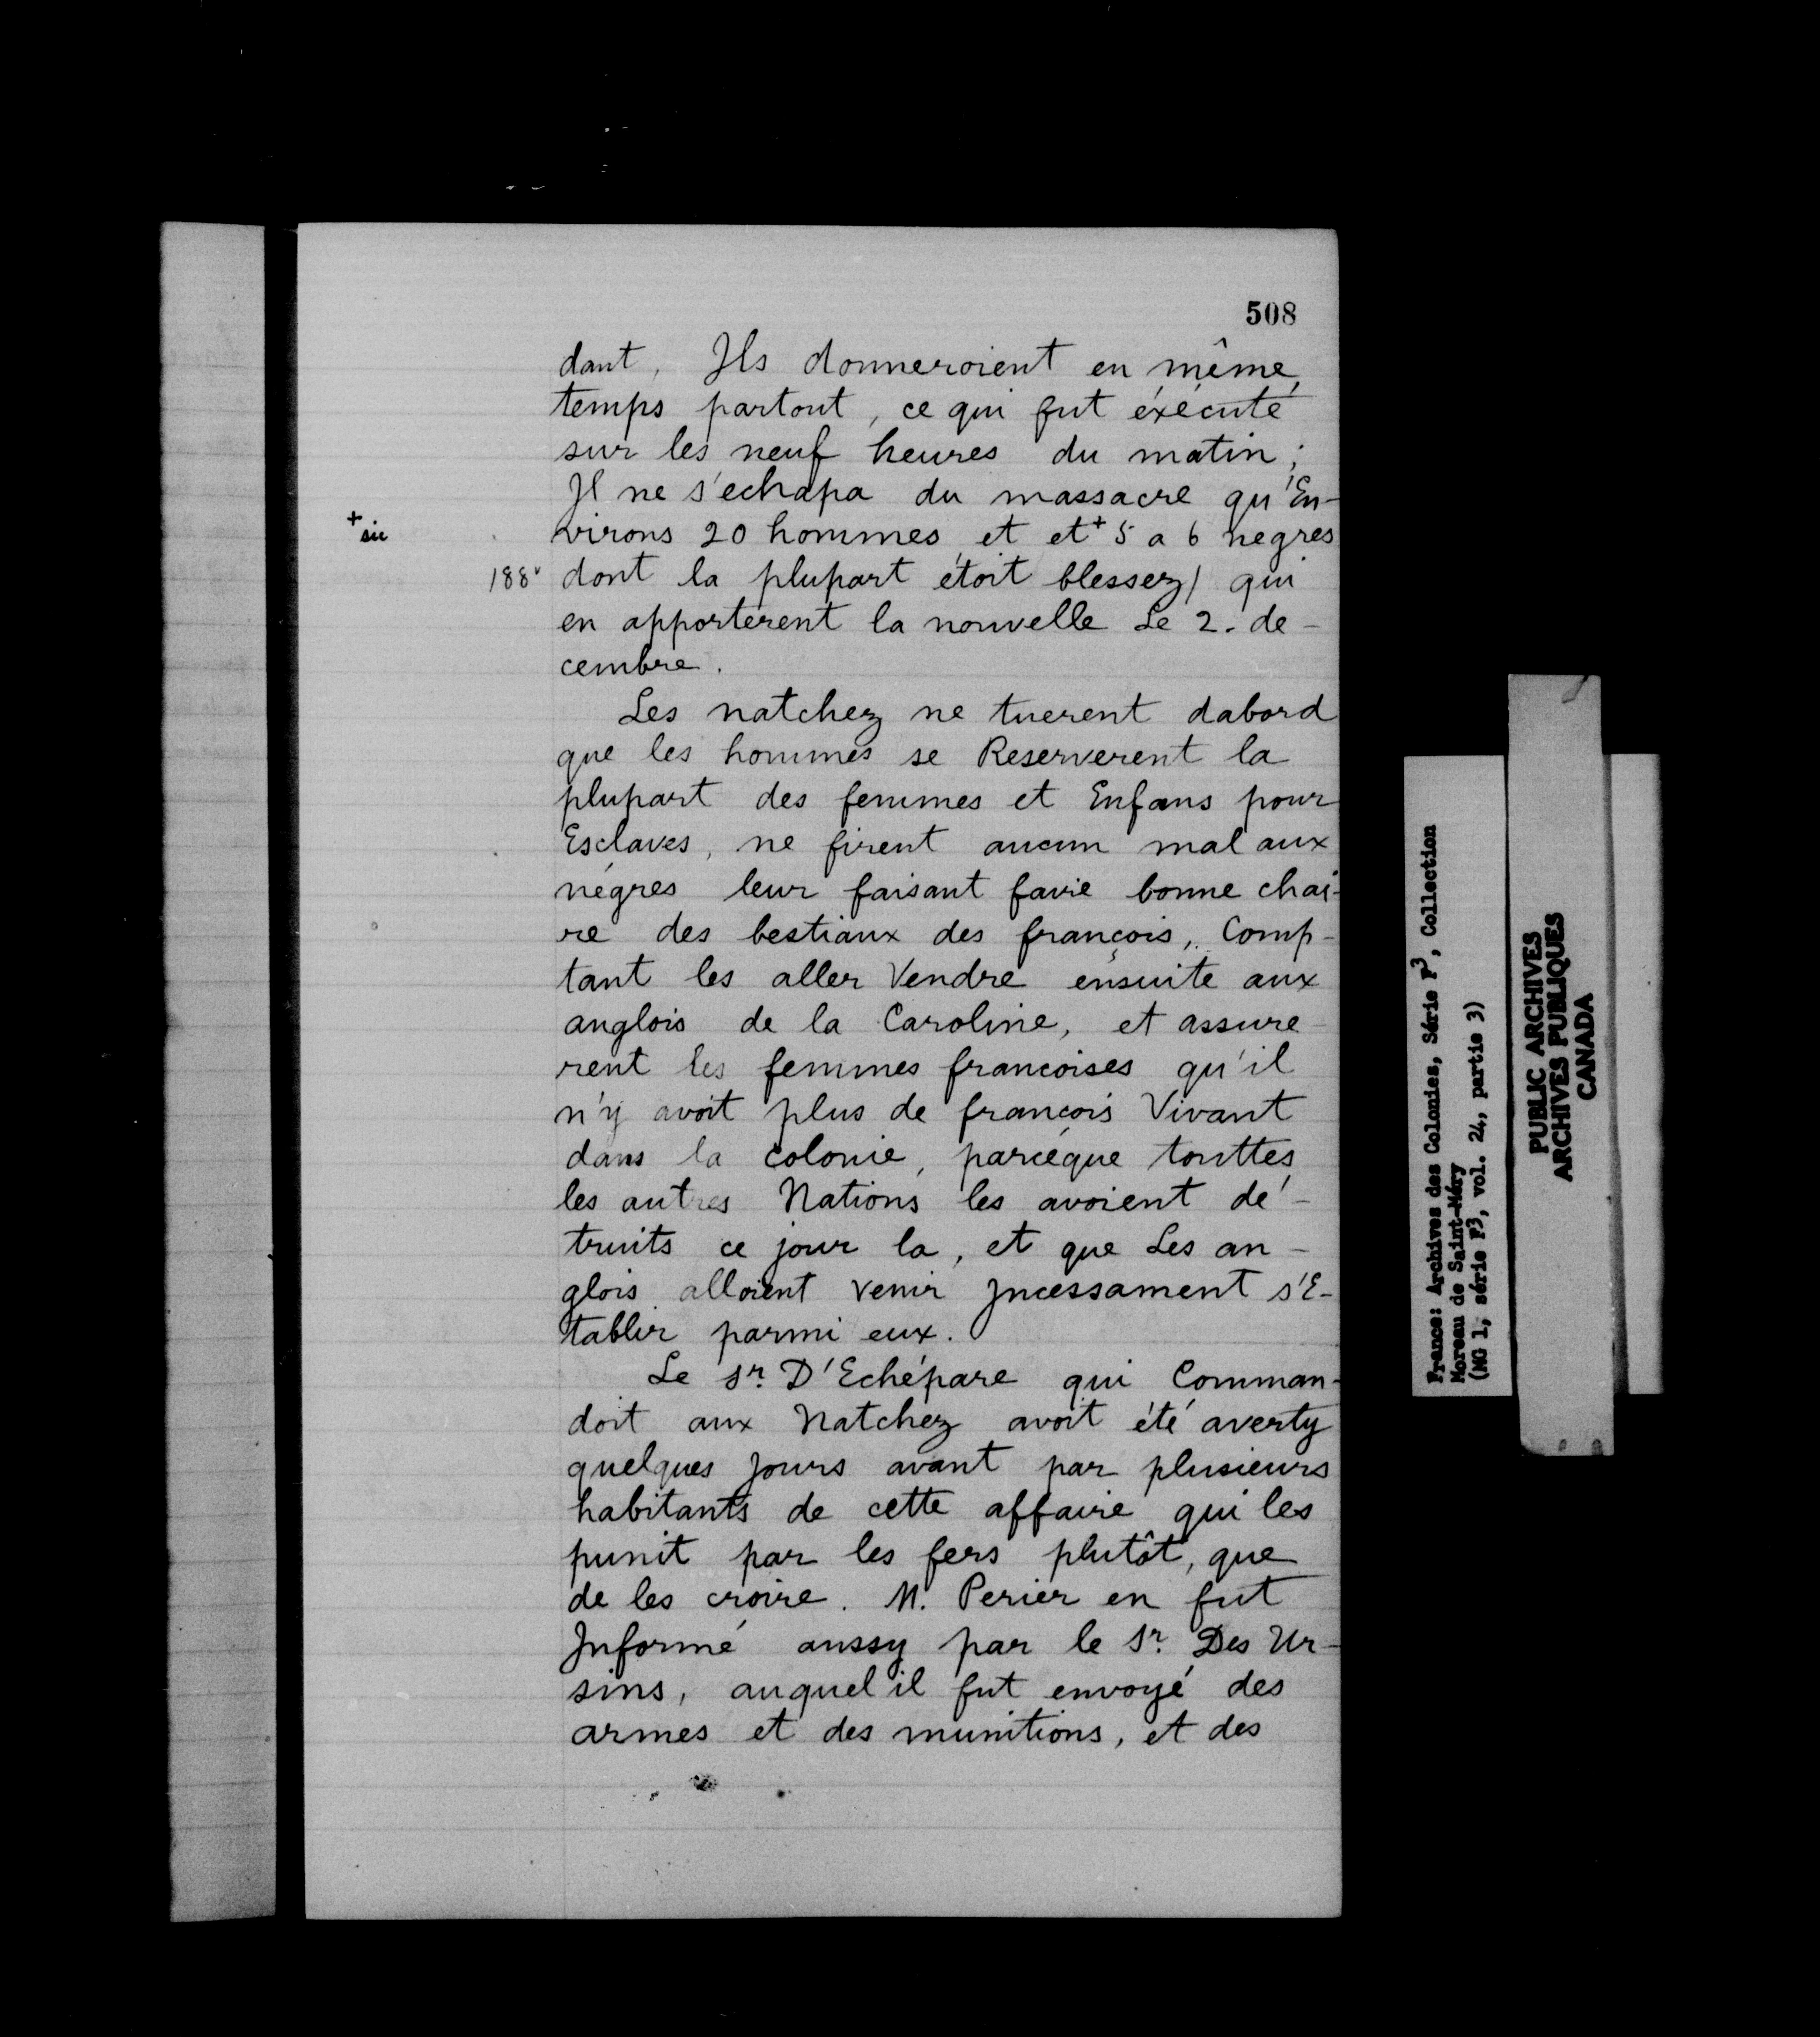 508
dant, Ils donneroient en même
temps partout, ce qui fut éxécuté
sur les neuf heures du matin;
Il ne s'echapa du massacre qu'En-
+ sic
virons 20 hommes et et + 5 a 6 negres
188v
dont la plupart étoit blessez/ qui
en apportèrent la nouvelle Le 2. de-
cembre.
Les natchez ne tuerent dabord
que les hommes se Reserverent la
plupart des femmes et Enfans pour
Esclaves, ne firent aucun mal aux
négres leur faisant favie bonne chai-
re des bestiaux des françois, Comp-
tant les aller Vendre ensuite aux
anglois de la Caroline, et assure-
rent les femmes francoises qu'il
n'y avoit plus de françois Vivant
dans la colonie, parcéque touttes
les autres Nations les avoient dé-
truits ce jour la, et que Les an-
glois alloient venir Incessament s'E-
tablir parmi eux.
Le Sr. D'Echépare qui Comman-
doit aux Natchez avoit été averty
quelques Jours avant par plusieurs
habitants de cette affaire qui les
punit par les fers plutôt, que
de les croire. M. Perier en fut
Informé aussy par le Sr. Des Ur-
sins, auquel il fut envoyé des
armes et des munitions, et des
France: Archives des Colonies, Série F3, Collection
Moreau de Saint-Méry
(MG 1, série F3, vol. 24, partie 3)
PUBLIC ARCHIVES
ARCHIVES PUBLIQUES
CANADA